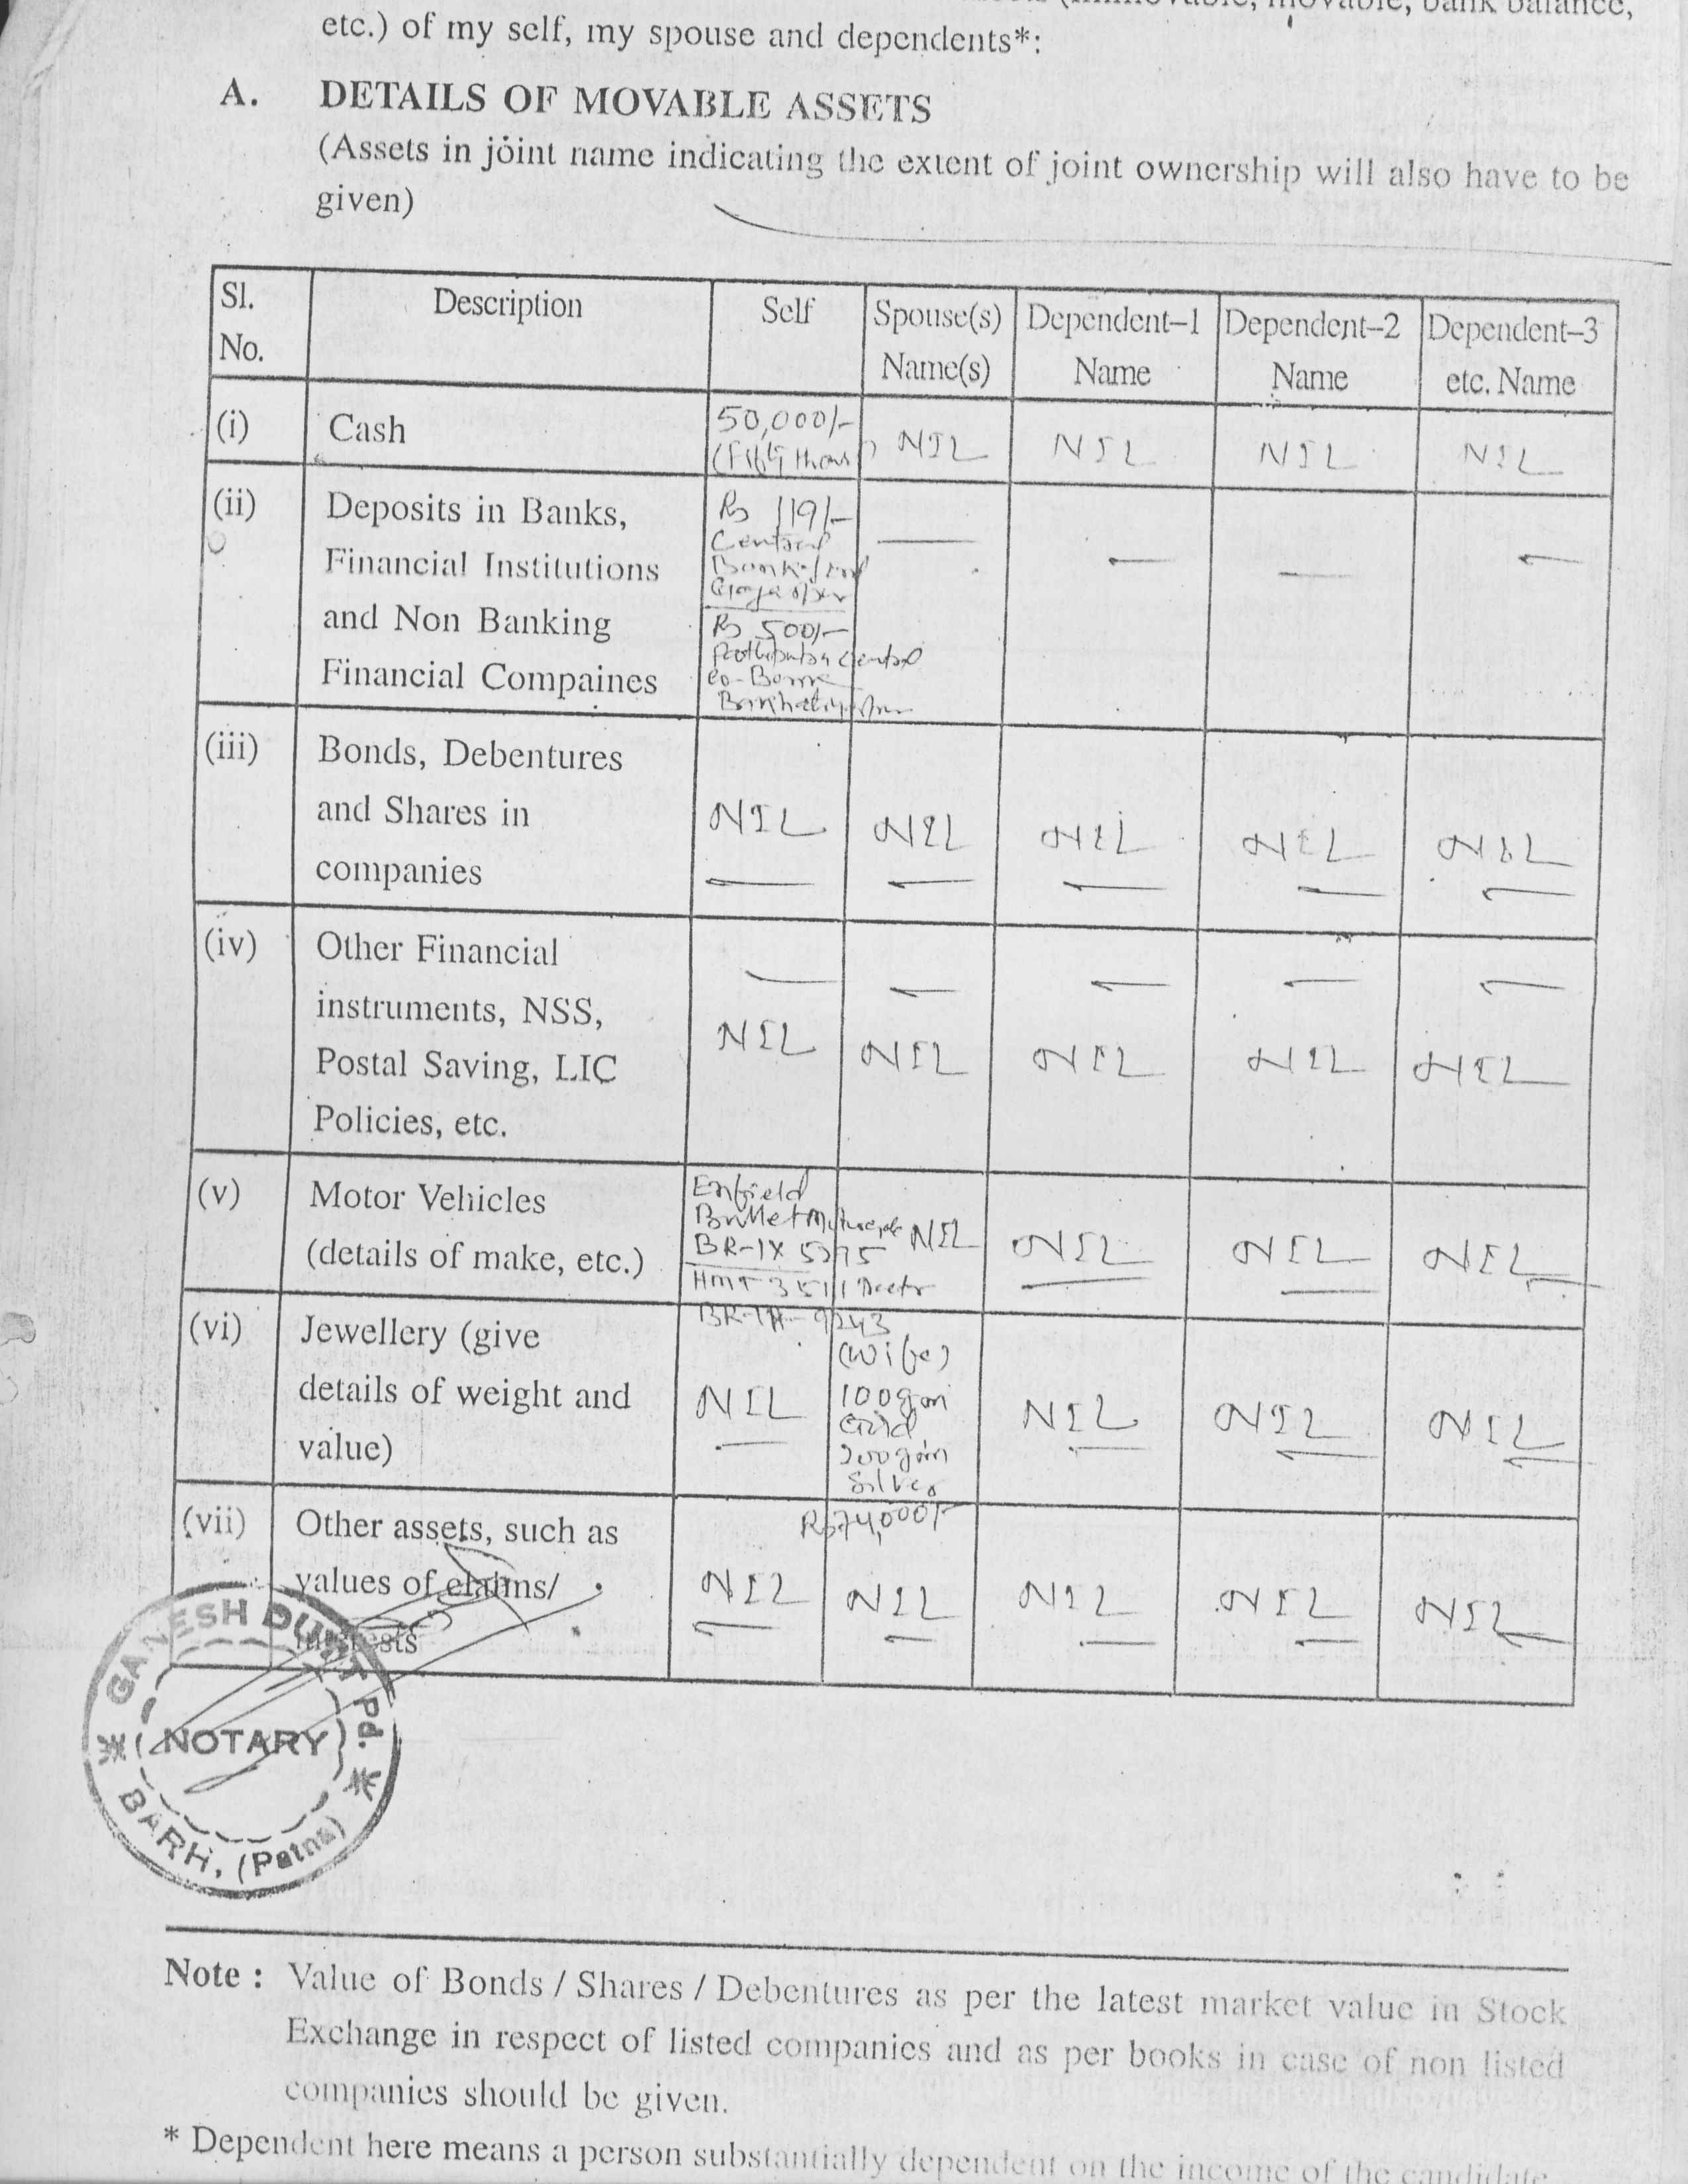 balance,
etc.) of my self, my spouse and dependents*:
A. DETAILS OF MOVABLE ASSETS
(Assets in joint name indicating the extent of joint ownership will also have to be
given)
Sl. No. Description Self Spouse(s) Name(s) Dependent–1 Name Dependent–2 Name Dependent–3 etc. Name
(i) Cash 50,000/- NIL NIL NIL NIL
(ii) Deposits in Banks,
Financial Institutions
and Non Banking
Financial Compaines
Rs 119/-
Central
Bank
Rs 500/-
Central
(iii) Bonds, Debentures
and Shares in
companies
NIL NIL NIL NIL NIL
(iv) Other Financial
instruments, NSS,
Postal Saving, LIC
Policies, etc.
NIL NIL NIL NIL NIL
(v) Motor Vehicles
(details of make, etc.)
Enfield
Bullet
BR-1X
HMT 3511
NIL NIL NIL NIL
(vi) Jewellery (give
details of weight and
value)
NIL
(Wife)
100gm
Gold
200gm
Silver
Rs 74,000/-
NIL NIL NIL
(vii) Other assets, such as
values of claims/
interests
NIL NIL NIL NIL NIL
GANESH DUTT Pd.
NOTARY
BARH, (Patna)
Note : Value of Bonds / Shares / Debentures as per the latest market value in Stock
Exchange in respect of listed companies and as per books in case of non listed
companies should be given.
* Dependent here means a person substantially dependent on the income of the candidate